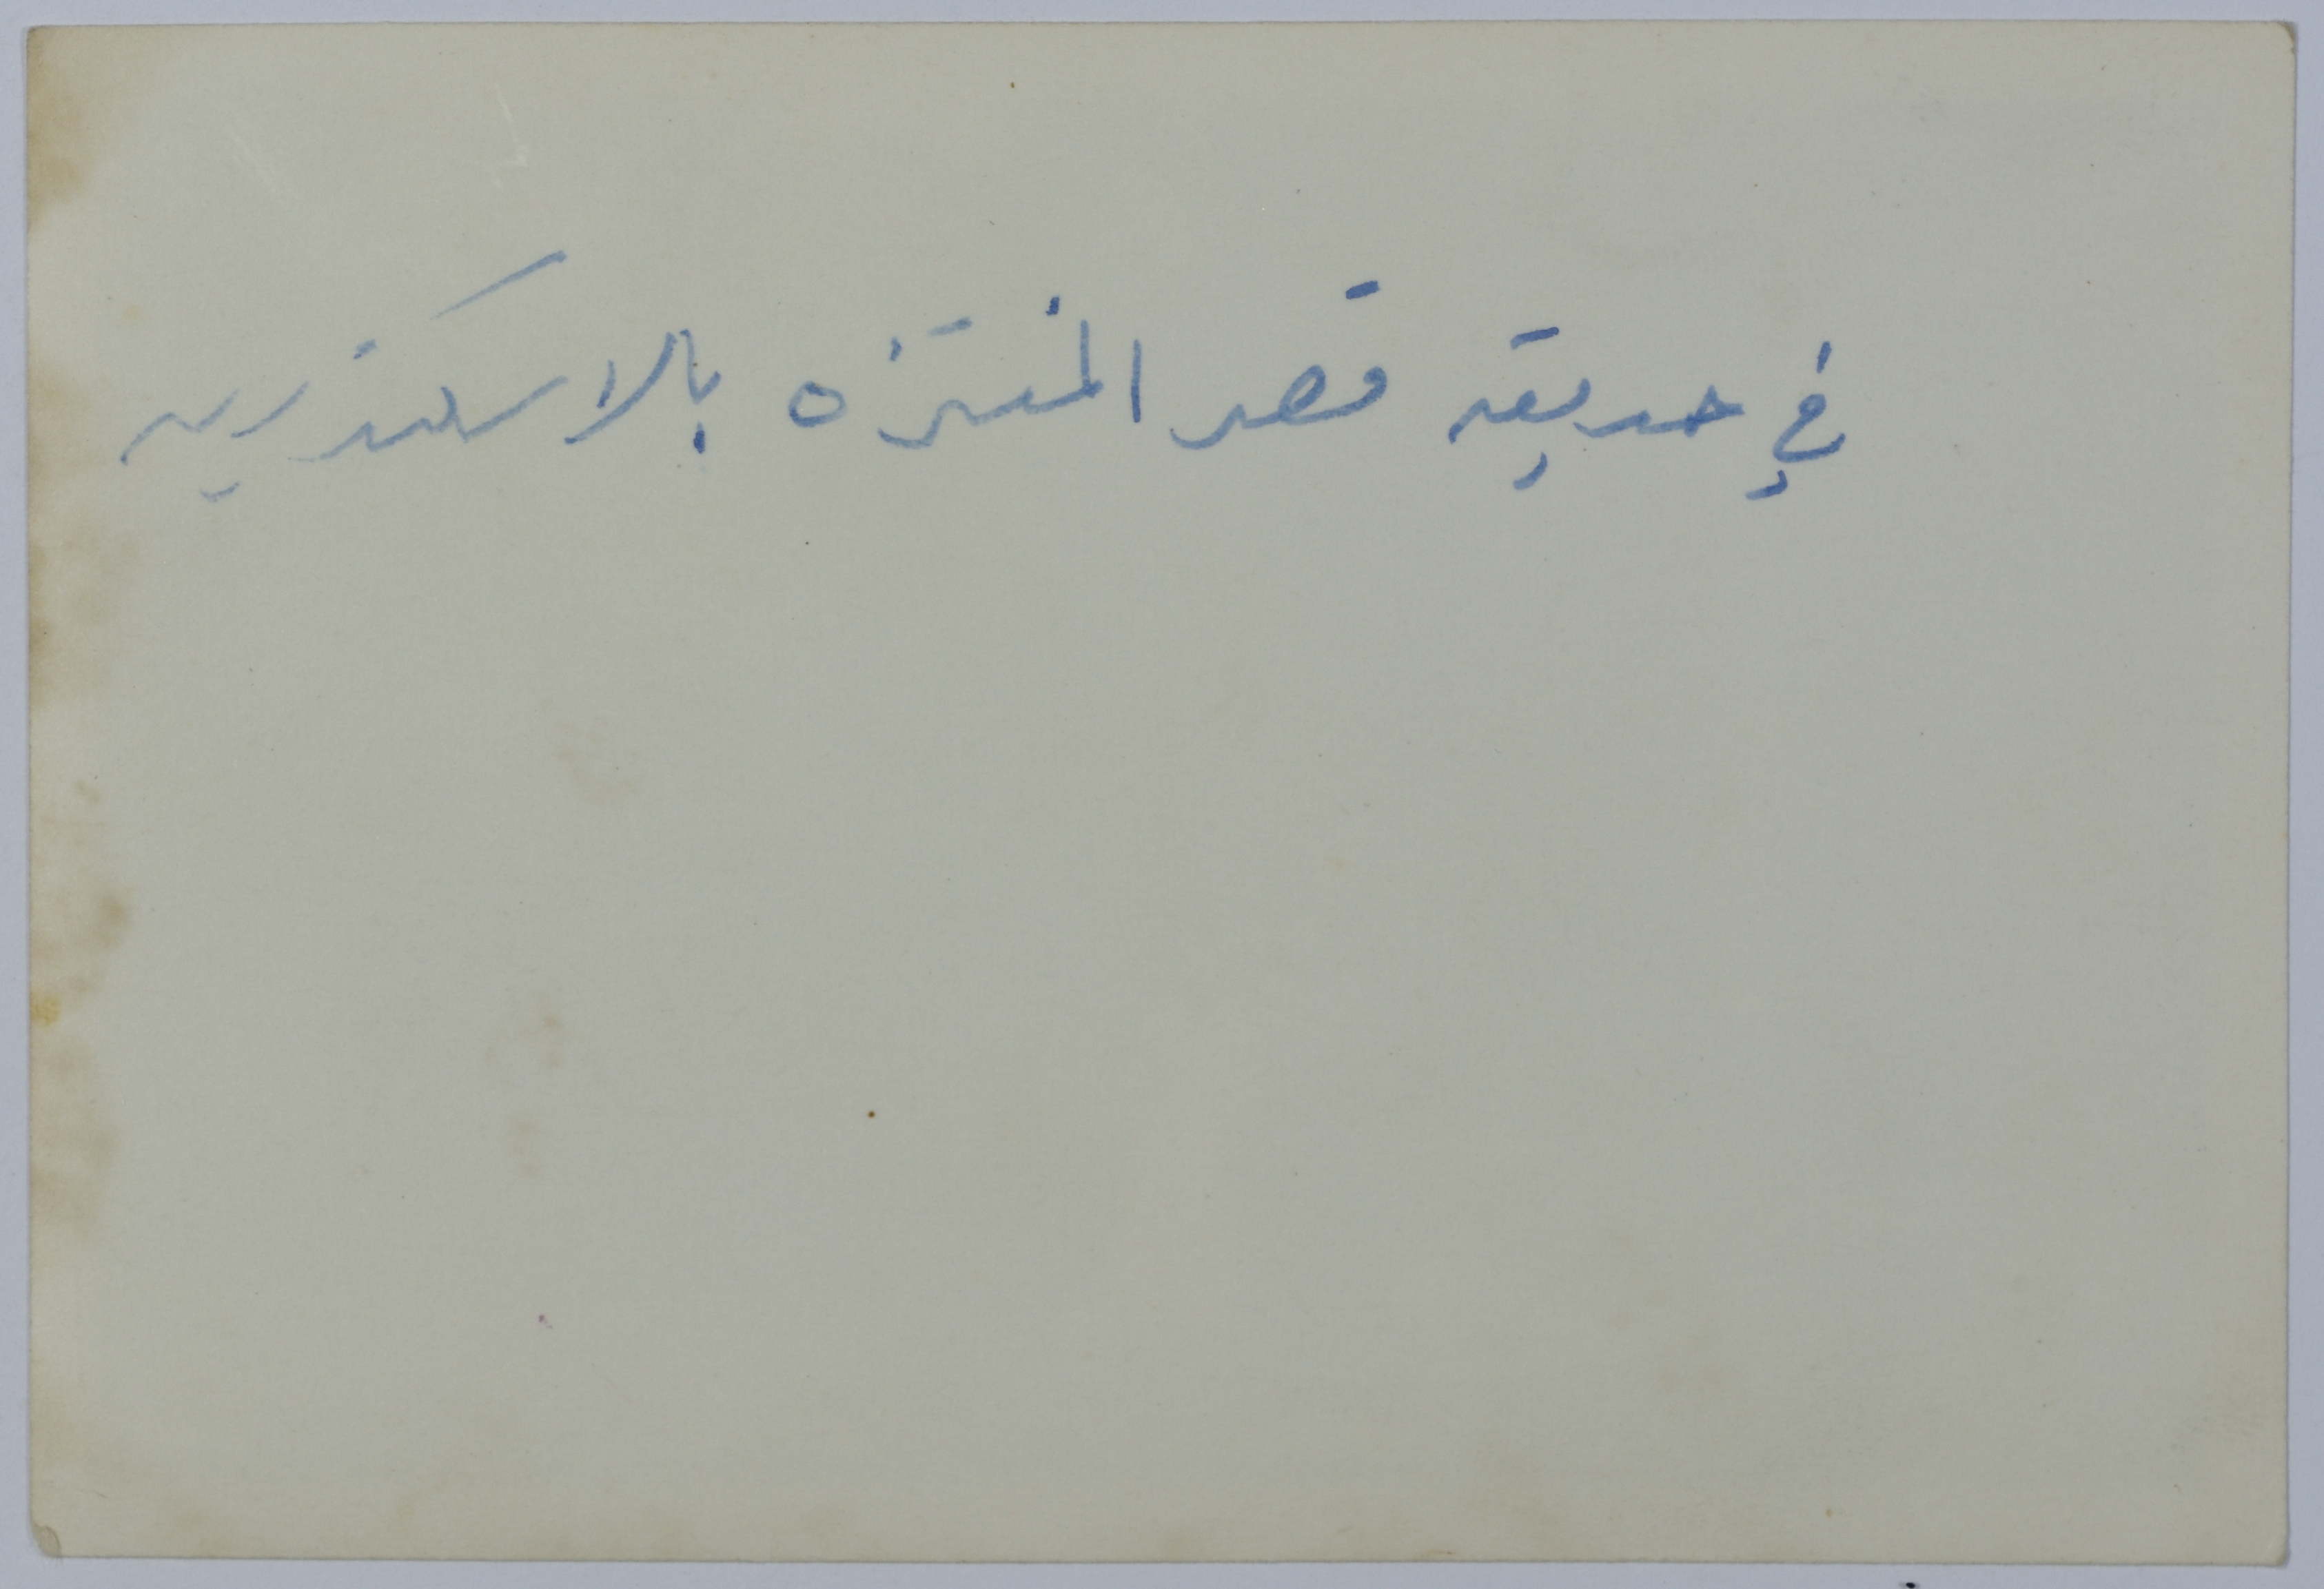 في حديقه قصر المنتزه بالاسكندريه